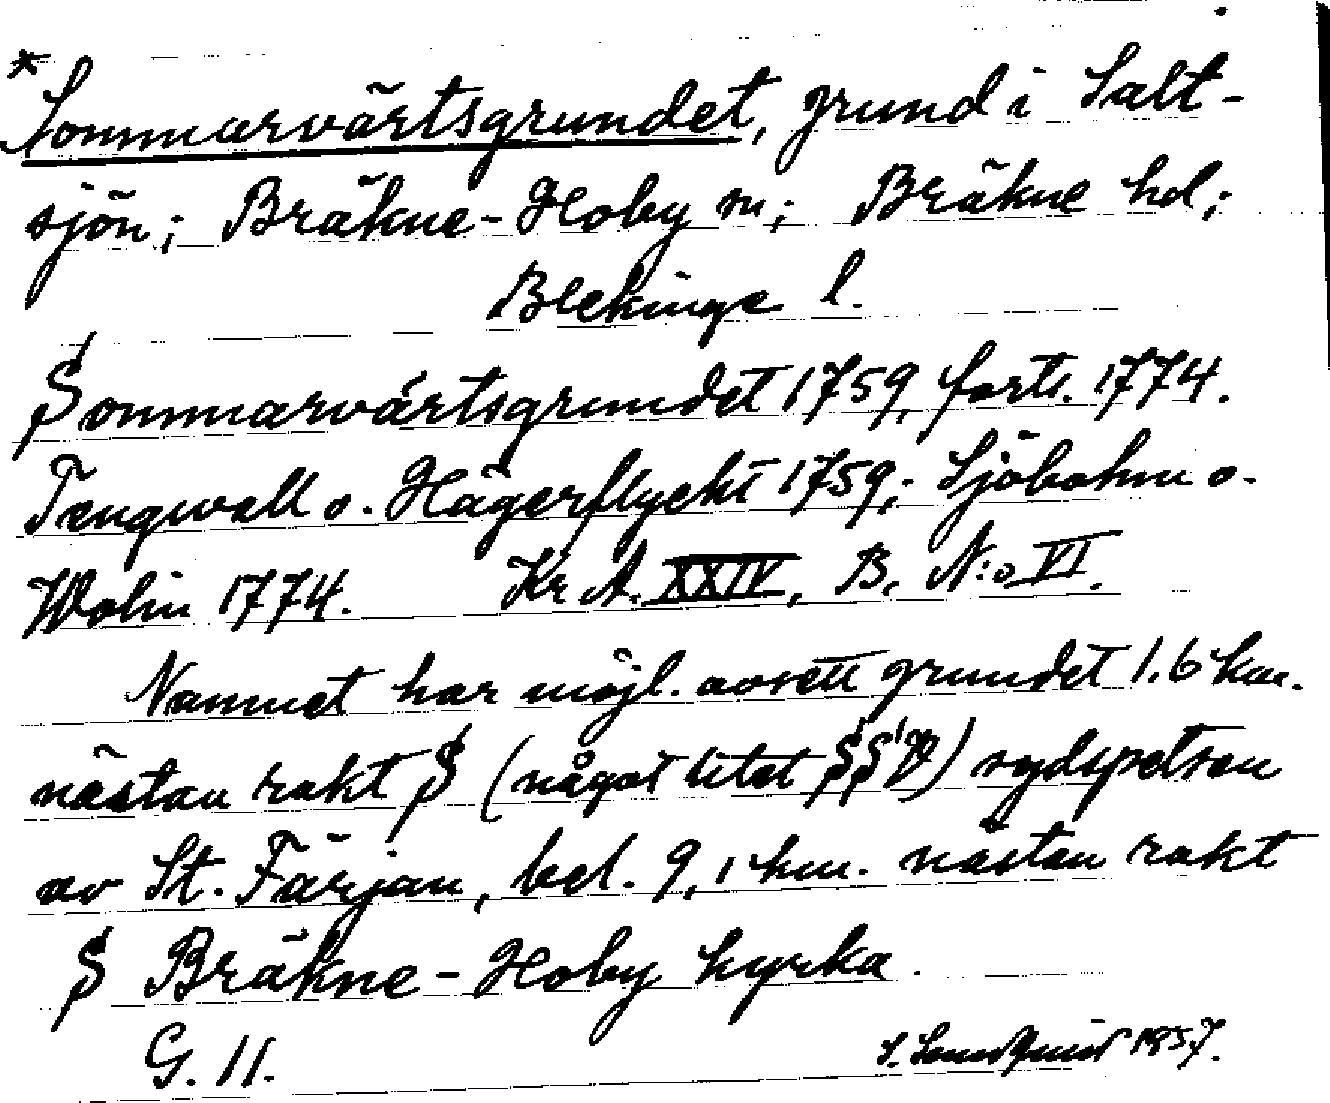 *Sommarvärtsgrundet, grund i Salt-
sjön; Bräkne-Hoby sn; Bräkne hd;
Blekinge l.
Sommarvärtsgrundet 1759, forts. 1774.
Tengwall o. Hägerflycht 1759; Sjöbohm o.
Wolin 1774. Kr A. XXIV, B, N:o VI.
Namnet har möjl. avsett grundet 1.6 km.
nästan rakt S (något litet SSV) sydspetsen
av St. Färjan, bel. 9,1 km. nästan rakt
S Bräkne-Hoby kyrka.
G. 11. 1957.